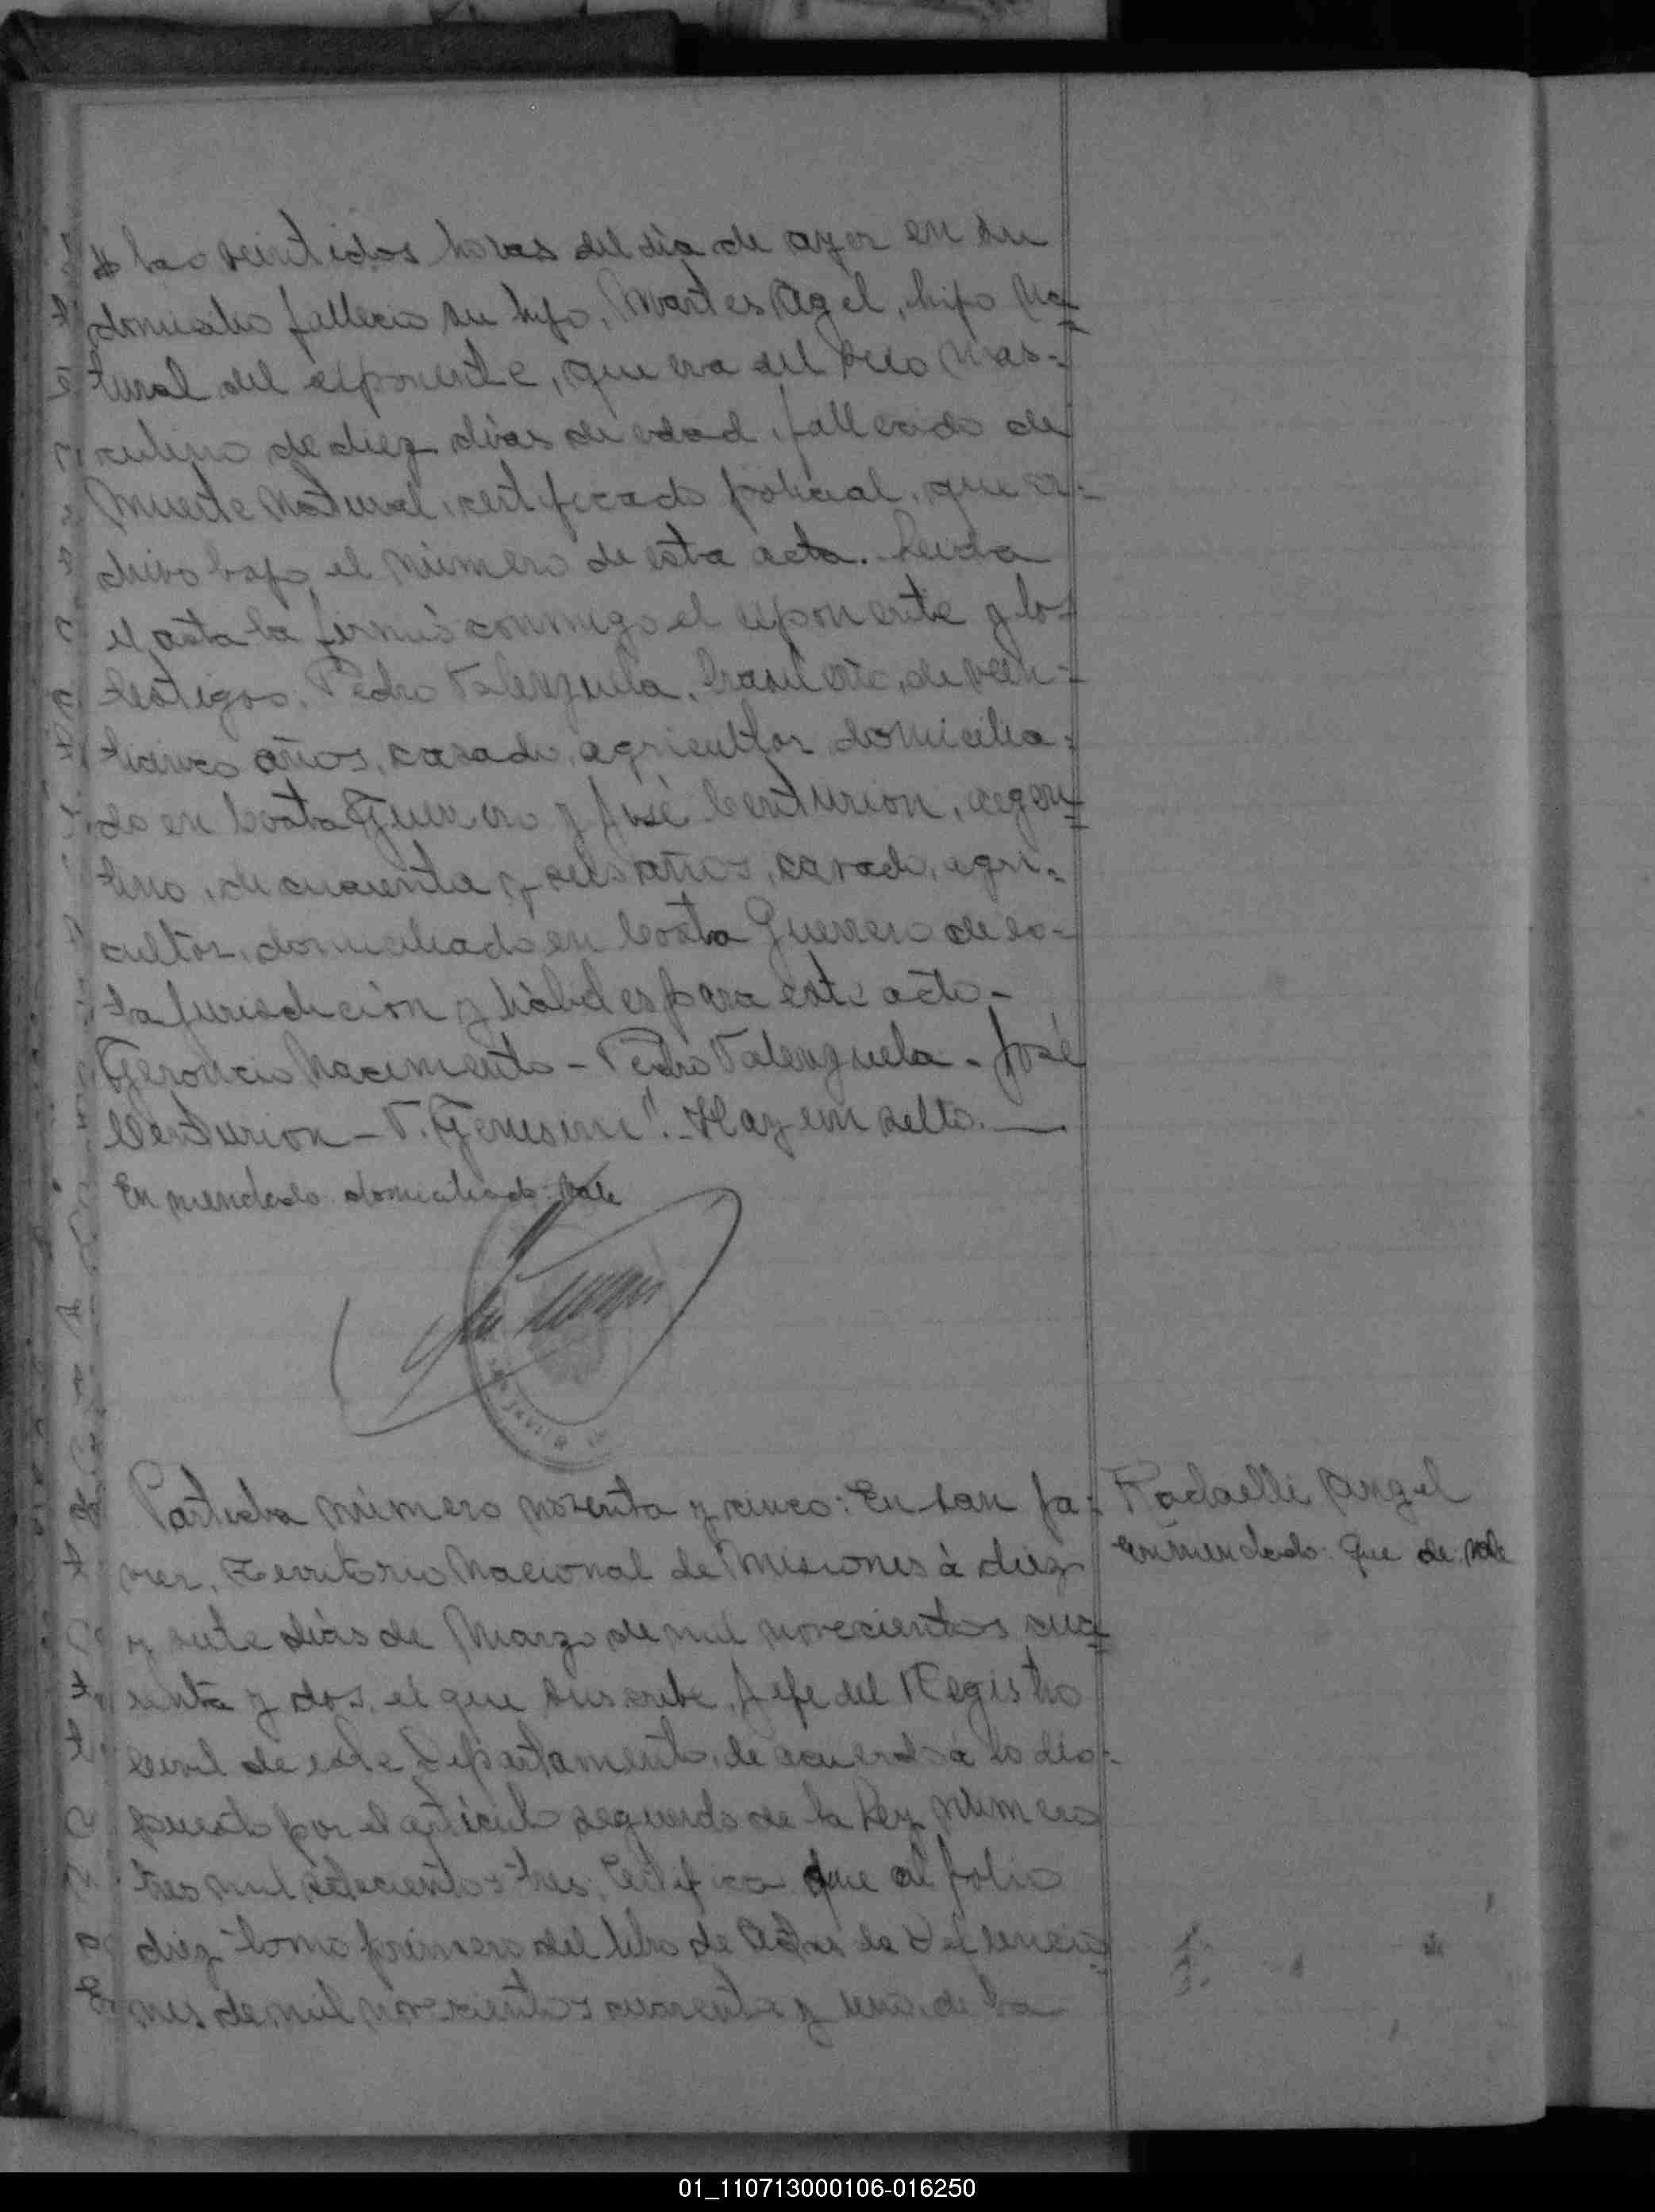 a las veintidos horas del día de ayer en su
domicilio fallecio su hijo, Martes Agel, hijo na=
tural del exponente, que era del sexo mas-
culino de diez días de edad, fallecido de
muerte natural, certificado policial, que ar-
chivo bajo el número de esta acta. Leida
el acta la firmó conmigo el exponente y los
testigos. Pedro Valenzuela, brasileño, de vein-
ticinco años, casado, agricultor domicilia-
do en Costa Guerrero y José Centurion, argen=
tino, de cuarenta y seis años, casado, agri-
cultor, domiciliado en Costa Guerrero de es-
ta jurisdicion y hábiles para este acto-
Geroncio Nacimento - Pedro Valenzuela - José
Centurion - V. "- Hay un sello.
Enmendado: domiciliado: Vale
Partida número noventa y cinco: En San Ja-
vier, Territorio Nacional de Misiones à diez
y siete días de Marzo de mil novecientos cua=
renta y dos, el que suscribe, Jefe del Registro
Civil de este Departamento, de acuerdo a lo dis-
puesto por el artículo segundo de la Ley número
tres mil setecientos tres, Certifica que al folio
diez tomo primero del libro de Actas de Defuncio
nes de mil novecientos cuarenta y uno, de la
Radaelli Angel
enmendado: que de: Vale
01_110713000106-016250